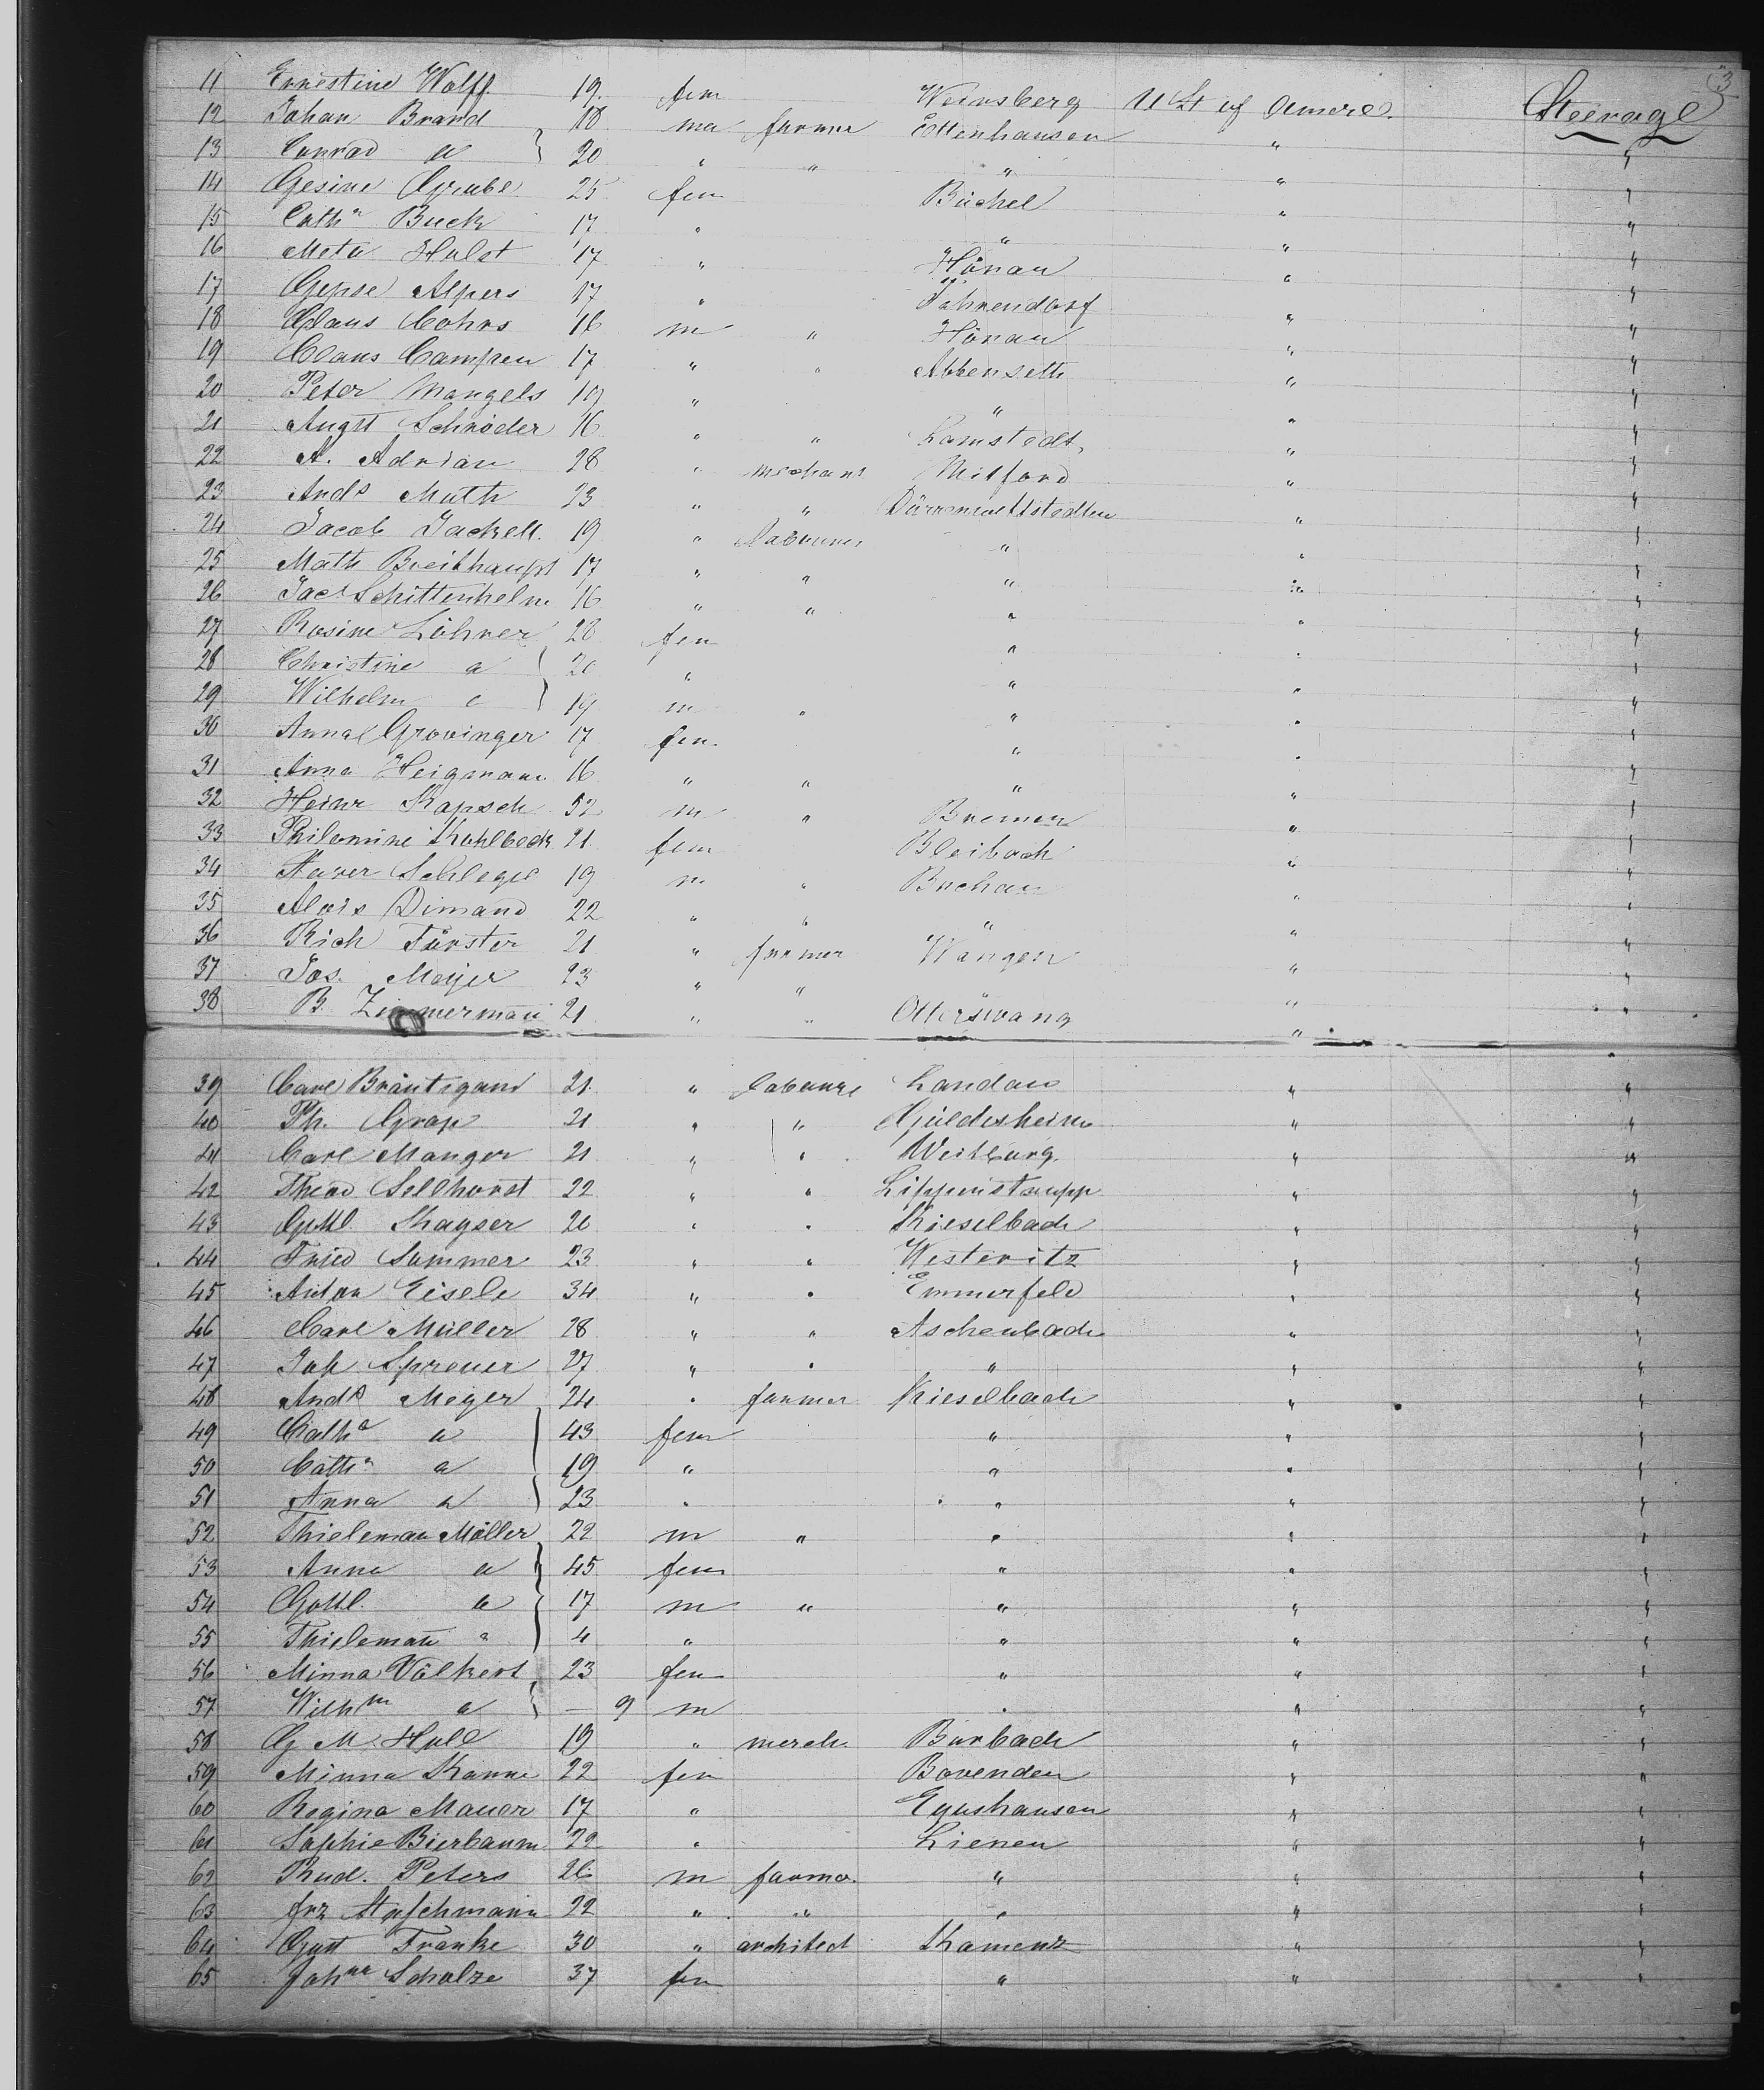 3
11 Ernestine Wolff 19. fem Weinsberg U St of Americ. Steerage
12 Johan Brand 18 ma farmer Ettenhausen " "
13 Conrad a 20 " " " " "
14 Gesine Grube 25 fem Büchel " "
15 Cath^a Buck 17 " " " "
16 Meta Holst 17 " Hönau " "
17 Gepse Alpers 17 " Fahrendorf " "
18 Claus Cohrs 16 m " Hönau " "
19 Claus Campen 17 " " Abbenseth " "
20 Peter Mangels 19 " " " "
21 Augst Schröder 16 " " Lamstedt " "
22 A. Adrian 28 " mechanc Milford " "
23 And^s Muth 23 " " Dürrenmettstedten " "
24 Jacob Jackell. 19 " labourer " " "
25 Math Breithaupt 17 " " " " "
26 Jac. Schittenhelm 16 " " " " "
27 Rosine Löhrer 28 fem " " "
28 Christine a 20 " " " "
29 Wilhelm a 19 m " " " "
30 Anna Grovinger 17 fem. " " "
31 Anna Heigmann 16 " " " " "
32 Heinr Kapsch 52 m " Bremen " "
33 Philomine Kohlbeck 21. fem Bleibach " "
34 Xaver Schlegel 19 m " Buchau " "
35 Alois Dimand 22 " " " " "
36 Rich Fürster 21 " farmer Wangen " "
37 Jos. Mayer 23 " " " "
38 B. Zimmermann 21 " " Otterswang " "
39 Carl Bräutigam 21. " labourer Landau " "
40 Ph. Grap 21 " " Güldesheim " "
41 Carl Manger 21 " " Weilburg " "
42 Theod Sellhorst 22 " " Lipperstrupp " "
43 Gottl. Kayser 20 " " Kieselbach " "
44 Fried Sommer 23 " " Westeritz " "
45 Anton Eisele 34 " " Emmerfeld " "
46 Carl Müller 28 " " Aschenbach " "
47 Joh Sprener 27 " " " " "
48 And^s Meyer 24 " farmer Kieselbach " "
49 Cath^a a 43 fem " " "
50 Cath^a a 19 " " " "
51 Anna a 23 " " " "
52 Thieleman Möller 22 m " " " "
53 Anna a 45 fem " " "
54 Gottl. a 17 m " " " "
55 Thielemann a 4 " " " "
56 Minna Völkert 23 fem " " "
57 Wilh^m a — 9 m " " "
58 G M. Holl 19 " merch. Burbach " "
59 Minna Kanne 22 fem Bovenden " "
60 Regina Mauer 17 " Egushausen " "
61 Sophie Bierbaum 22 " Lienen " "
62 Rud. Peters 26 m farmer. " " "
63 frz 22 " " " " "
64 Gust Franke 30 " architect Kamenz " "
65 Joh^ne Scholze 37 fem " " "